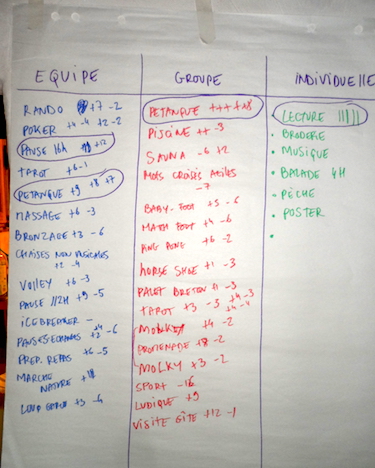 EQUIPE
RANDO +7 -2
POKER +4 -4 +2 -2
PAUSE 16A +12
TAROT +6 -1
PETANQUE +9 +8 +7
MASSAGE +6 -3
BRONZAGE +3 -6
CHAISES NON MUSICALES
+2 -4
VOLLEY +6 -3
PAUSE 1/2H +9 -5
ICE BREAKER -
PAUSES ECRANS +3 +4 -6
PREP. REPAS +6 -5
MARCHE
NATURE
LOUP GAROU +3 -6
GROUPE
PETANQUE
PISCINE ++ -3
SAUNA -6 +2
MOTS CROISÉS
-7
BABY-FOOT +5 -6
MATH FOOT +4 -6
PING PONG +6 -2
HORSE SHOE +1 -3
PALET BRETON -3
TAROT +3 -3 +4 -3
+4 -4
MOLKKY +4 -2
PROMENADE +8 -2
MOLKY +3 -2
SPORT -16
LUDIQUE +9
VISITE GÎTE +12 -1
INDIVIDUELLE
LECTURE
• BRODERIE
• MUSIQUE
• BALADE 4H
• PÊCHE
• POSTER
•